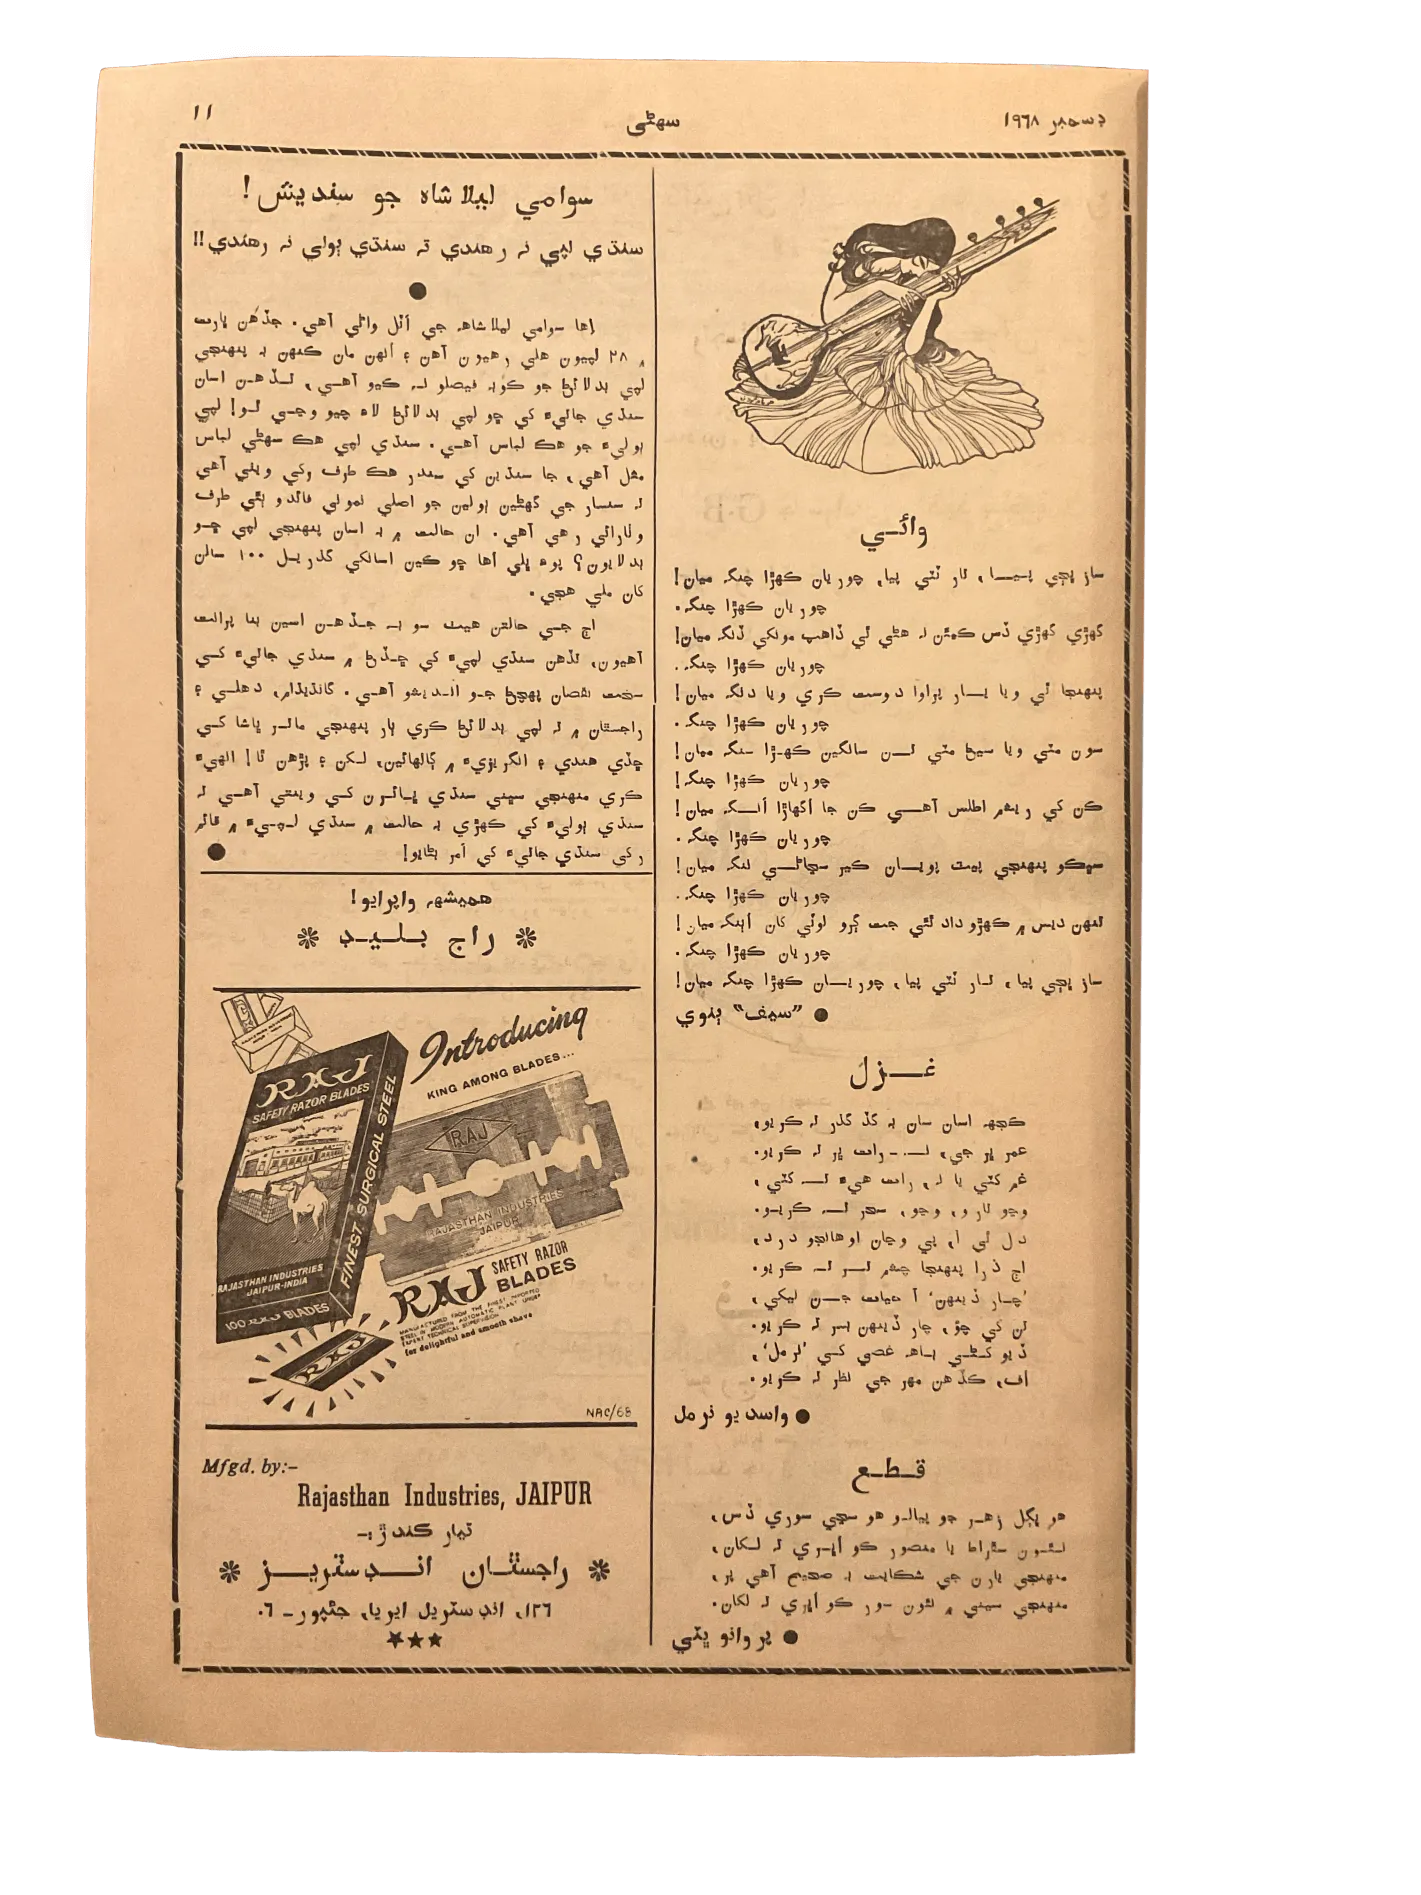 ڊسمبر ١٩٦٨
سهڻي
١١
وائـي
ساز ڀڄي پيـا، تار ٽٽي پيا، چوريان ڪهڙا چنگ ميان!
چوريان ڪهڙا چنگ.
گهڙي گهڙي ڏس ڪمئن ته هڻي ٿي ڏاهپ مونکي ڏنگ ميان!
چوريان ڪهڙا چنگ.
پنهنجا ئي ويا يـار پراوا دوست ڪري ويا دنگ ميان!
چوريان ڪهڙا چنگ.
سون مٽي ويا سيڻ مٽي تـن سانگين ڪهـڙا سنگ ميان!
چوريان ڪهڙا چنگ!
ڪن کي ريشم اطلس آهـي ڪن جا اگهاڙا انـگ ميان!
چوريان ڪهڙا چنگ.
سڀڪو پنهنجي پيٽ پويـان ڪير سڃاڻـي ننگ ميان!
چوريان ڪهڙا چنگ.
تنهن ديس ۾ ڪهڙو داد ٿئي جت ڳرو لوئي کان اننگ ميان!
چوريان ڪهڙا چنگ.
ساز ڀڄي پيا، تـار ٽٽي پيا، چوريـان ڪهڙا چنگ ميان!
● ”سيف“ ٻنوي
غــزل
ڪجهه اسان سان به گڏ گذر ته ڪريو،
عمر ڀر جي، نـ۔ - رات ڀر ته ڪريو.
غم ڪٽي يا نه، رات هيءَ تـه ڪٽي،
وڃو تارو، وڃو، سحر تـه ڪريـو.
دل ئي آ، ٻي وڃان اوهانجو درد،
اڄ ذرا پنهنجا چشم تـر تـه ڪريو.
’چـار ڏينهن‘ آ حيات جـن ليکي،
تن کي چؤ، چار ڏينهن بسر ته ڪريو.
ڏيو کـڻـي بـاهه غصي کـي ’نرمل‘،
اف، ڪڏهن مهر جي نظر ته ڪريو.
● واسديو نرمل
قـطـع
هو ڀڳل زهـر جو پيالـو هو سڄي سوري ڏس،
نـئـون سقراط يا منصور ڪو اڀـري نه لـگان،
منهنجي يارن جي شڪايت به صحيح آهي پر،
منهنجي سيني ۾ نئون سور ڪو اڀري نه لگان.
● پروانو ڀٽي
سوامي ليلا شاهه جو سنديش!
سنڌي لپي نه رهندي ته سنڌي ٻولي نه رهندي!!
●
اها سوامي ليلاشاهه جي اٽل واڻي آهي. جڏهن ڀارت
۾ ٢٨ لپيون هلي رهيون آهن ۽ انهن مان ڪنهن به پنهنجي
لپي بدلائڻ جو ڪوبه فيصلو نـه ڪيو آهـي، تـڏهـن اسان
سنڌي جاتيءَ کي ڇو لپي بدلائڻ لاءِ چيو وڃـي ٿـو! لپي
ٻوليءَ جو هڪ لباس آهـي. سنڌي لپي هڪ سهڻي لباس
مثل آهي، جا سنڌين کي سندر هڪ طرف رکي ويٺي آهي
ته سنسار جي گهڻين ٻولين جو اصلي نموني فائدو ٻئي طرف
وٺارائي رهي آهي. ان حالت ۾ به اسان پنهنجي لپي ڇـو
بدلايون؟ پوءِ ڀلي اها ڇو ڪين اسانکي گذريـل ١٠٠ سالن
کان ملي هجي.
اڄ جـي حالتن هيٺ سو بـه جـڏهـن اسين بنا پرانت
آهيون، تڏهن سنڌي لپيءَ کي ڇـڏڻ ۾ سنڌي جاتيءَ کـي
سخت نقصان پهچڻ جـو انـديشو آهـي. گانڌيڌام، دهلـي ۽
راجستان ۾ ته لپي بدلائڻ ڪري ٻار پنهنجي ماتـر ڀاشا کـي
ڇڏي هندي ۽ انگريزيءَ ۾ ڳالهائين، لـکن ۽ پڙهن ٿا! انهيءَ
ڪري منهنجي سڀني سنڌي ڀـائـرن کـي وينتي آهـي ته
سنڌي ٻوليءَ کي ڪهڙي به حالت ۾ سنڌي لـپـيءَ ۾ قائم
رکي سنڌي جاتيءَ کي امر بڻايو! ●
هميشهه واپرايو!
❋ راج بـلـيـڊ ❋
Introducing
KING AMONG BLADES...
RAJ
SAFETY RAZOR BLADES
FINEST SURGICAL STEEL
RAJASTHAN INDUSTRIES
JAIPUR-INDIA
100 RAJ BLADES
RAJ
RAJASTHAN INDUSTRIES
JAIPUR
RAJ SAFETY RAZOR
BLADES
MANUFACTURED FROM THE FINEST IMPORTED
STEEL IN MODERN AUTOMATIC PLANT UNDER
EXPERT TECHNICAL SUPERVISION
for delightful and smooth shave
RAJ
NAC/68
Mfgd. by:-
Rajasthan Industries, JAIPUR
تيار ڪندڙ:-
❋ راجسٿـان انـڊسٽريـز ❋
١٢٦، انڊسٽريل ايريا، جئپور - ٦.
★★★